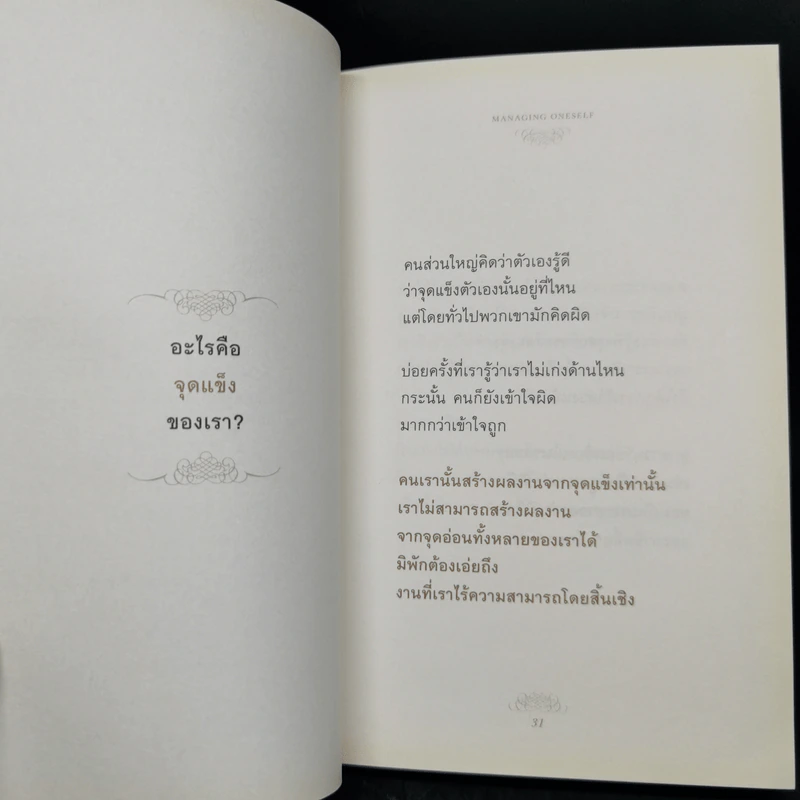 อะไรคือ
จุดแข็ง
ของเรา?
MANAGING ONESELF
คนส่วนใหญ่คิดว่าตัวเองรู้ดี
ว่าจุดแข็งตัวเองนั้นอยู่ที่ไหน
แต่โดยทั่วไปพวกเขามักคิดผิด
บ่อยครั้งที่เรารู้ว่าเราไม่เก่งด้านไหน
กระนั้น คนก็ยังเข้าใจผิด
มากกว่าเข้าใจถูก
คนเรานั้นสร้างผลงานจากจุดแข็งเท่านั้น
เราไม่สามารถสร้างผลงาน
จากจุดอ่อนทั้งหลายของเราได้
มิพักต้องเอ่ยถึง
งานที่เราไร้ความสามารถโดยสิ้นเชิง
31